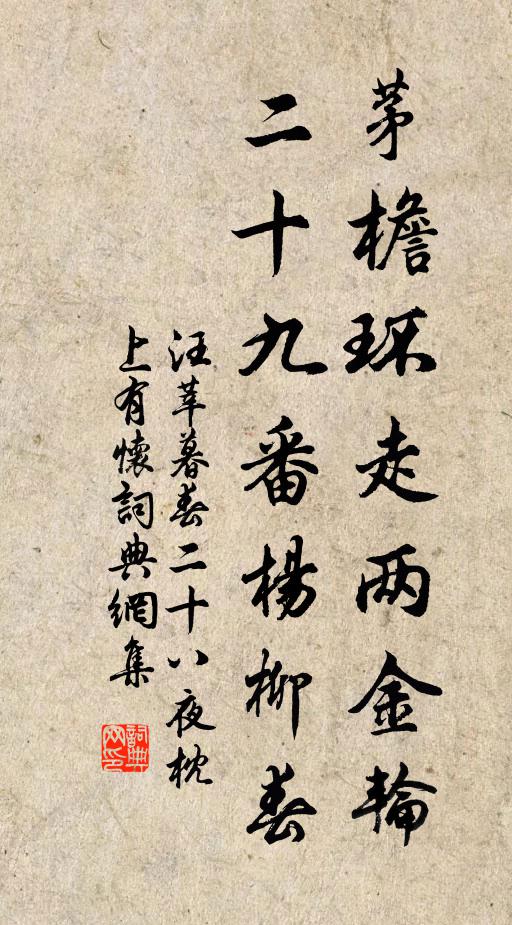 茅檐环走两金輪
二十九番楊柳春
汪莘暮春二十八夜枕
上有懷詞典網集
詞典
网印